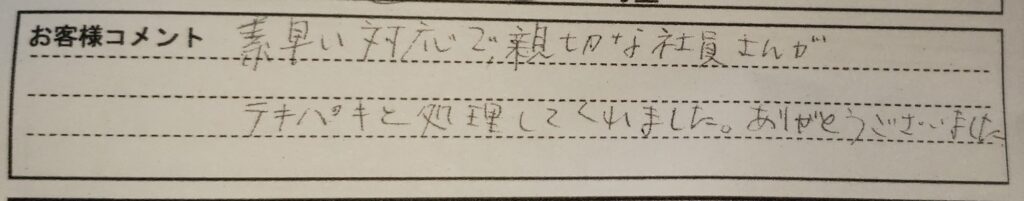 お客様コメント 素早い対応で、親切な社員さんが
テキパキと処理してくれました。ありがとうございました